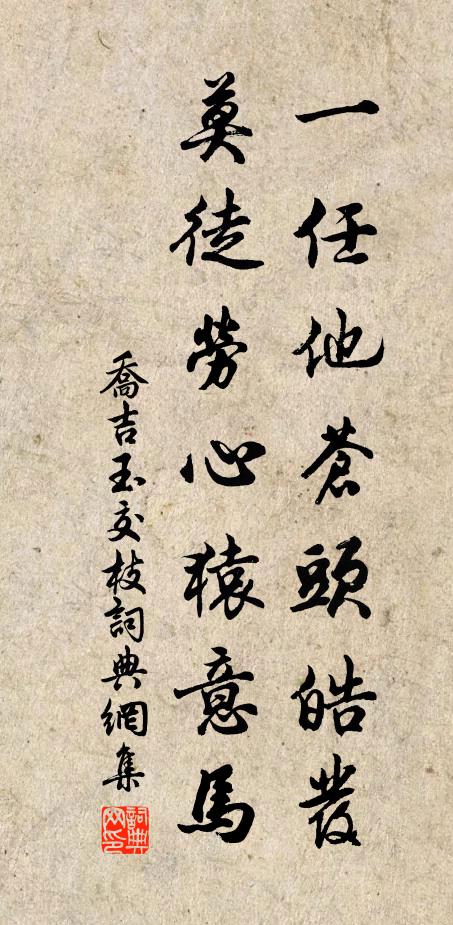 一任他蒼頭皓發
莫徒勞心猿意馬
喬吉玉交枝詞典網集
詞典網印